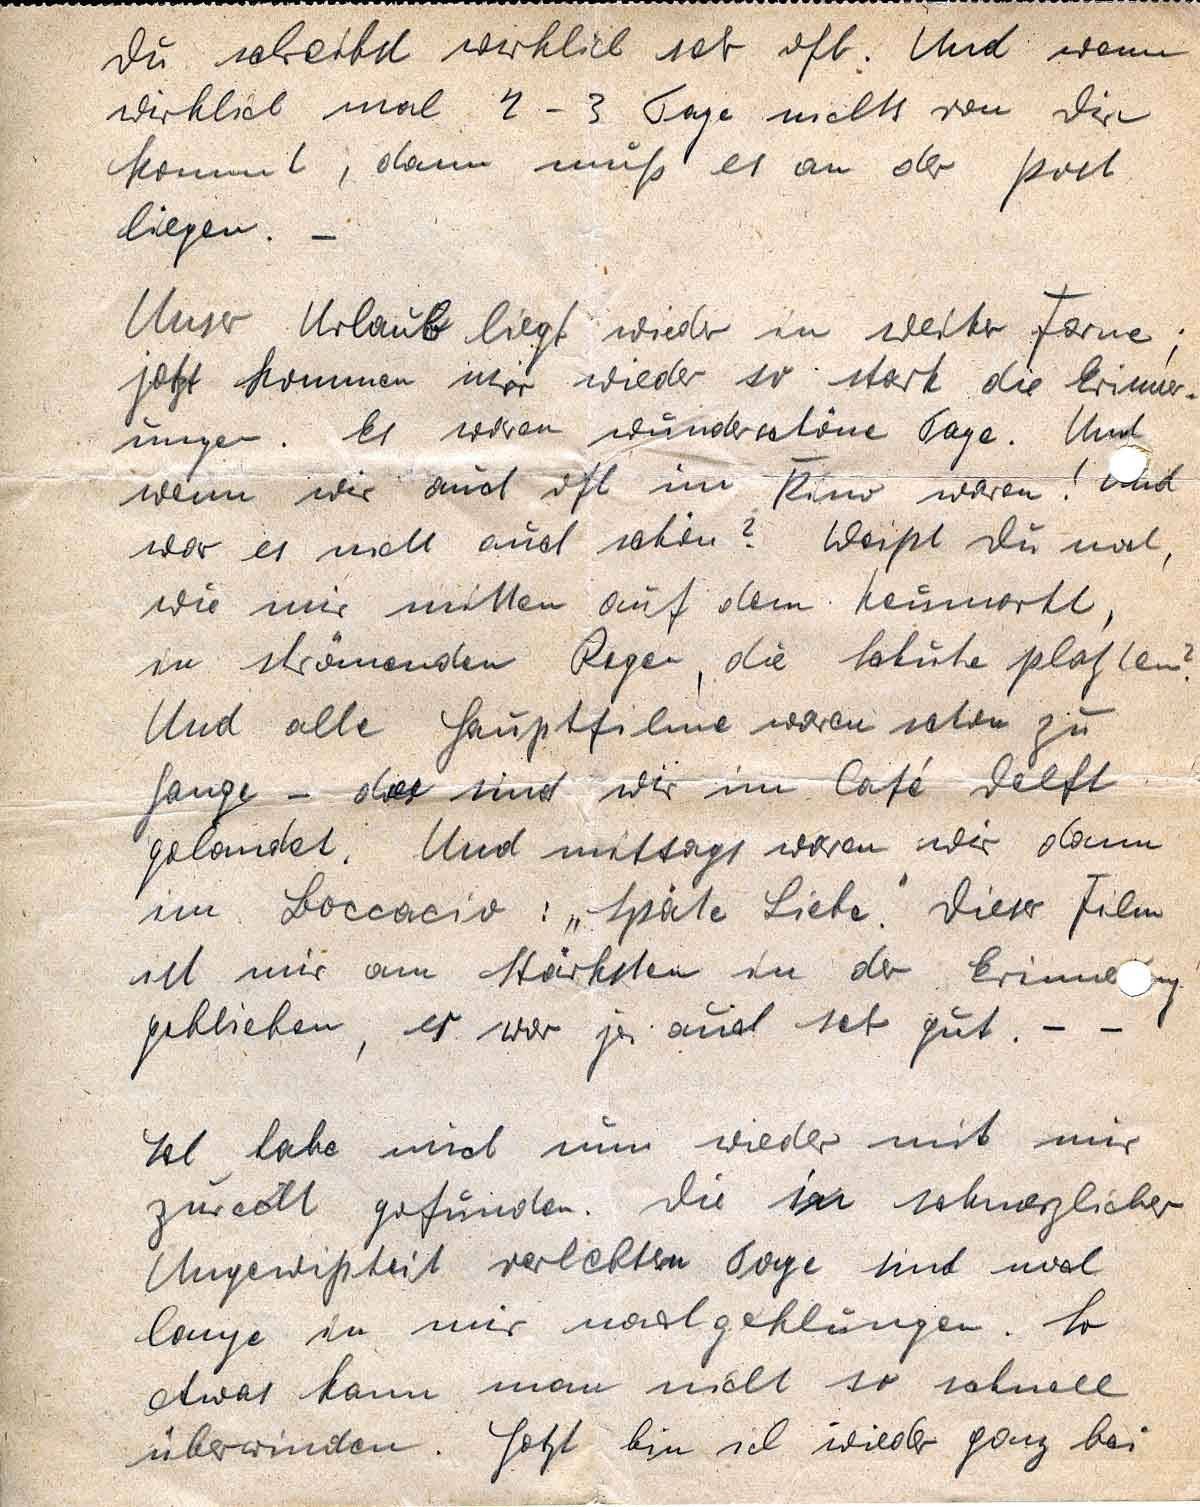 Du schreibst wirklich sehr oft. Und wenn
wirklich mal 2 - 3 Tage nichts von Dir
kommt, dann muß es an der Post
liegen. –
Unser Urlaub liegt wieder in weiter Ferne;
jetzt kommen mir wieder so stark die Erinner-
ungen. Es waren wunderschöne Tage. Und
wenn wir auch oft im Kino waren! Und
war es nicht auch schön? Weißt Du noch,
wie mir mitten auf dem Neumarkt,
in strömenden Regen, die Schuhe platzten?
Und alle Hauptfilme waren schon zu
Gange – da sind wir im Café Delft
gelandet. Und mittags waren wir dann
im Boccacio: „Späte Liebe." Dieser Film
ist mir am stärksten in der Erinnerung
geblieben, er war ja auch sehr gut. – –
Ich habe mich nun wieder mit mir
zurecht gefunden. Die in schmerzlicher
Ungewißheit verlebten Tage sind noch
lange in mir nachgeklungen. So
etwas kann man nicht so schnell
überwinden. Jetzt bin ich wieder ganz bei